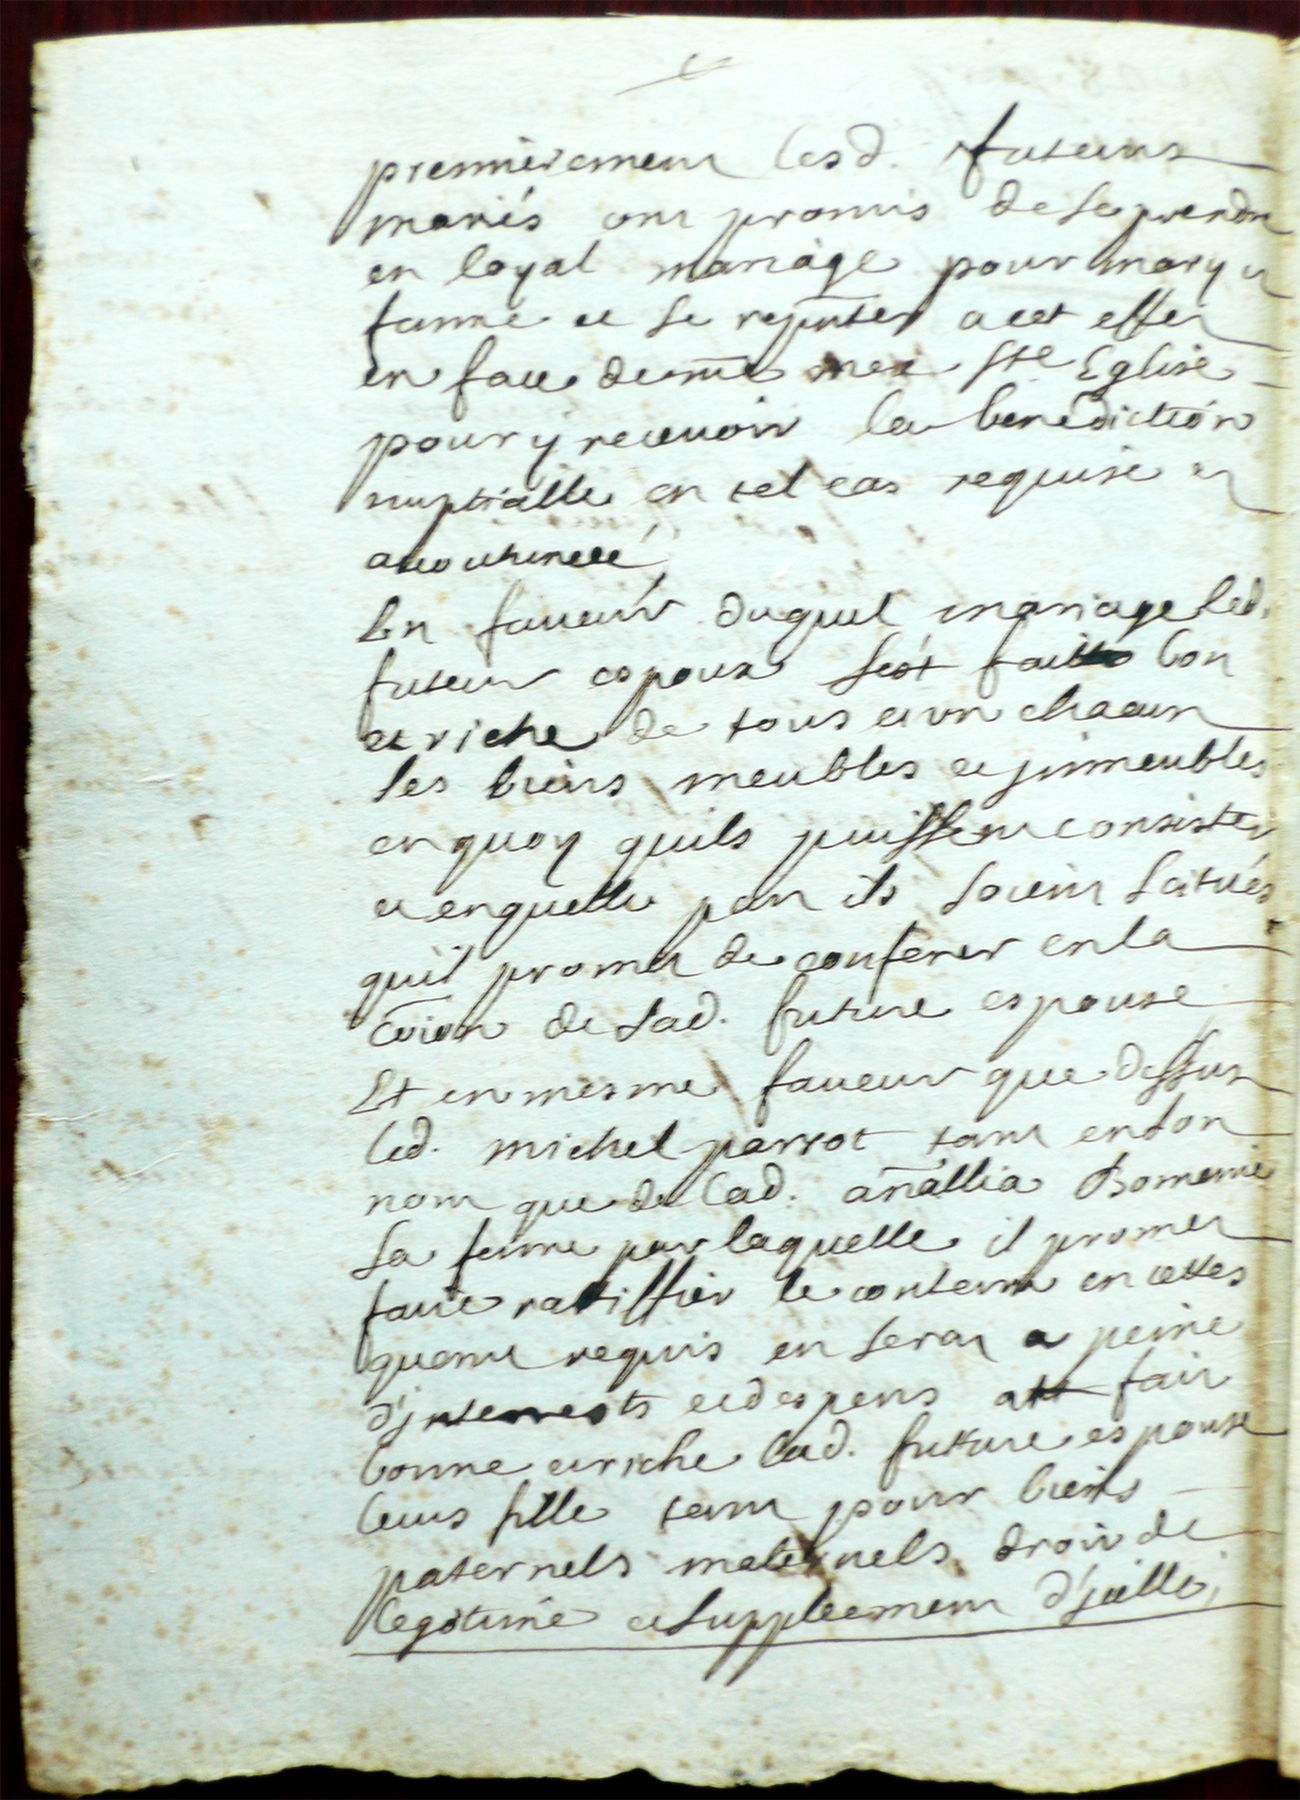 premierement lesd. futeurs
mariés ont promis de se prendre
en loyal mariage pour mary et
famme et se repnter a cet effet
en face de nre mere Ste Eglise
pour y recevoir la benediction
nuptialle en tel cas requise et
accoutumée
En faveur duquel mariage led.
futeur espoux sest faitte bon
et riche de tous et un chacun
ses biens meubles et jmmeubles
en quoy quils puissent consister
et en quelle part ils soient scitués
quil promet de conferer en la
coion de lad. future espouse
Et en mesme faveur que dessus
led. michel parrot tant en son
nom que de lad. anallia
sa femme par laquelle il promet
faire rattiffier le contenu en cettes
quant requis en serat a peine
d'jnterrests et despens at fait
bonne et riche lad. future espouse
leurs fille tant pour biens
paternels maternels droit de
legitime et supplement d'jcelle,